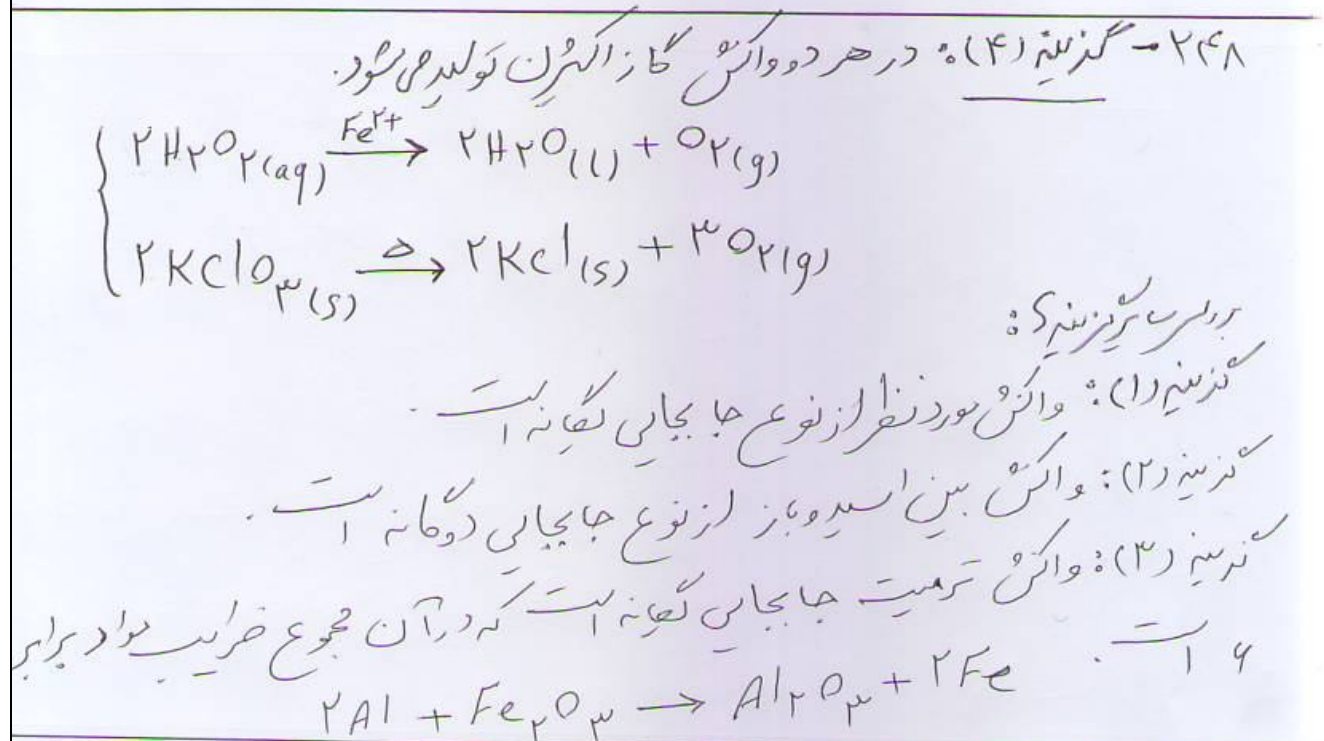 ۲۴۸- گزینه (۴): در هر دو واکنش گاز اکسیژن تولید می‌شود.
۲H۲O۲(aq) —Fe۲+→ ۲H۲O(l) + O۲(g)
۲KClO۳(s) —Δ→ ۲KCl(s) + ۳O۲(g)
بررسی سایر گزینه‌ها:
گزینه (۱): واکنش مورد نظر از نوع جابجایی یگانه است.
گزینه (۲): واکنش بین اسید و باز از نوع جابجایی دوگانه است.
گزینه (۳): واکنش ترمیت جابجایی یگانه است که در آن مجموع ضرایب مواد برابر
۶ است.
۲Al + Fe۲O۳ → Al۲O۳ + ۲Fe